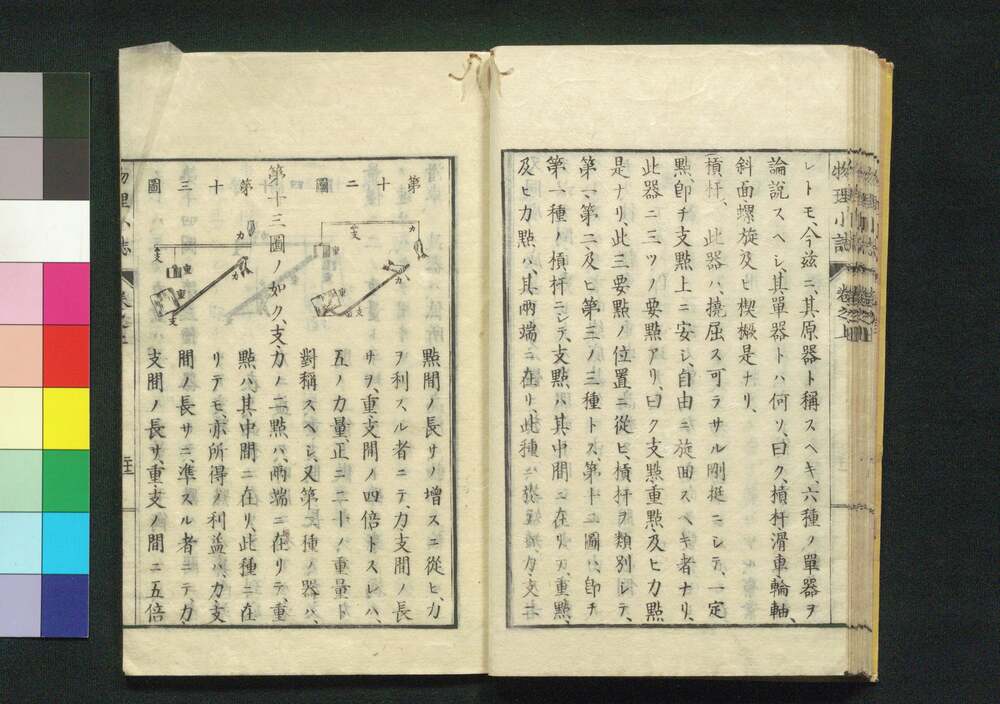 レトモ、今茲ニ、其原器ト稱スヘキ、六種ノ單器ヲ
論說スヘシ、其單器トハ何ソ、曰ク、槓杆、滑車、輪軸、
斜面、螺旋及ヒ楔橛是ナリ、
槓杆、此器ハ、撓屈ス可ラサル剛挺ニシテ、一定
點、卽チ支點上ニ安シ、自由ニ旋回スヘキ者ナリ、
此器ニ三ツノ要點アリ、曰ク支點重點、及ヒ力點
是ナリ、此三要點ノ位置ニ從ヒ、槓杆ヲ類別シテ、
第一、第二、及ヒ第三ノ三種トス、第十二圖ハ、卽チ
第一種ノ槓杆ニシテ、支點ハ其中間ニ在リ、重點、
及ヒ力點ハ、其兩端ニ在リ、此種ハ、力支
物理小誌 卷之上
第十二圖
力
支
重
點間ノ長サノ增スニ從ヒ、力
ヲ利スル者ニテ、力支間ノ長
サヲ、重支間ノ四倍トスレハ、
五ノ力量、正ニ二十ノ重量ト
對稱スヘシ、又第二種ノ器ハ、
第十三圖ノ如ク、支力ノ二點ハ、兩端ニ在リテ、重
第十三圖
力
支
重
點ハ、其中間ニ在リ、此種ニ在
リテモ、亦所得ノ利益ハ、力支
間ノ長サニ準スル者ニテ、力
支間ノ長サ、重支ノ間ニ五倍
物理小誌